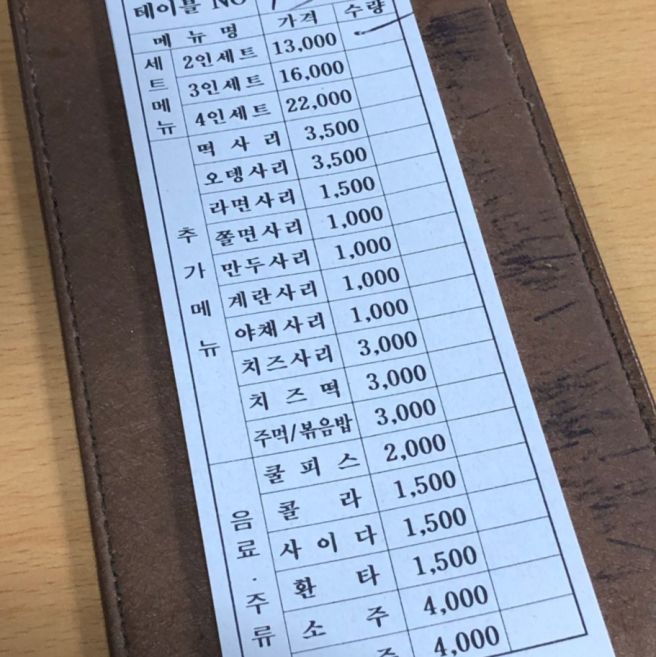 테이블 NO
메뉴명 가격 수량
세트메뉴
2인세트 13,000
3인세트 16,000
4인세트 22,000
추가메뉴
떡사리 3,500
오뎅사리 3,500
라면사리 1,500
쫄면사리 1,000
만두사리 1,000
계란사리 1,000
야채사리 1,000
치즈사리 3,000
치즈떡 3,000
주먹/볶음밥 3,000
음료·주류
쿨피스 2,000
콜라 1,500
사이다 1,500
환타 1,500
소주 4,000
4,000